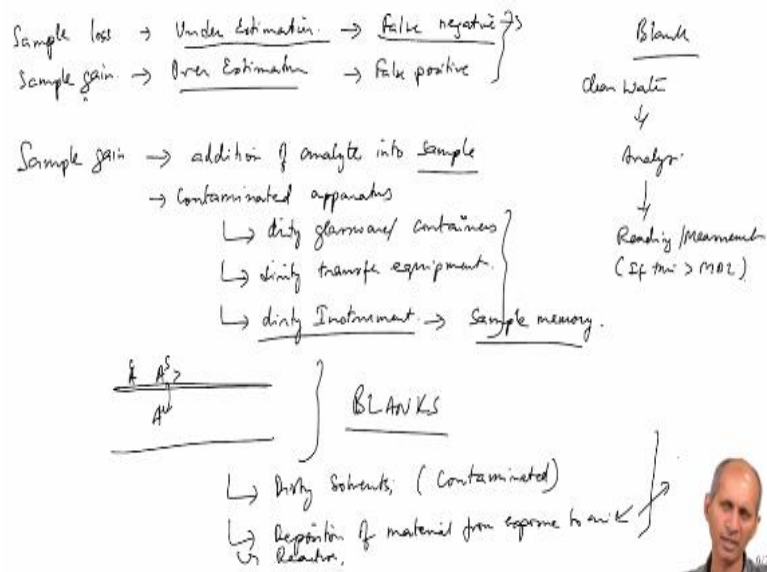 Sample loss → Under Estimation. → False negative
Sample gain. → Over Estimation → False positive
Sample gain → addition of analyte into sample
→ Contaminated apparatus
↳ dirty glassware/ containers
↳ dirity transfer equipment.
↳ dirty Instrument. → Sample memory.
A A
A
BLANKS
↳ Dirty Solvents, (Contaminated)
↳ Deposition of material from exposure to air
↳ Reaction,
Blank
Clean Water
↓
Analysis.
↓
Reading /Measurement
(If this > MDL)